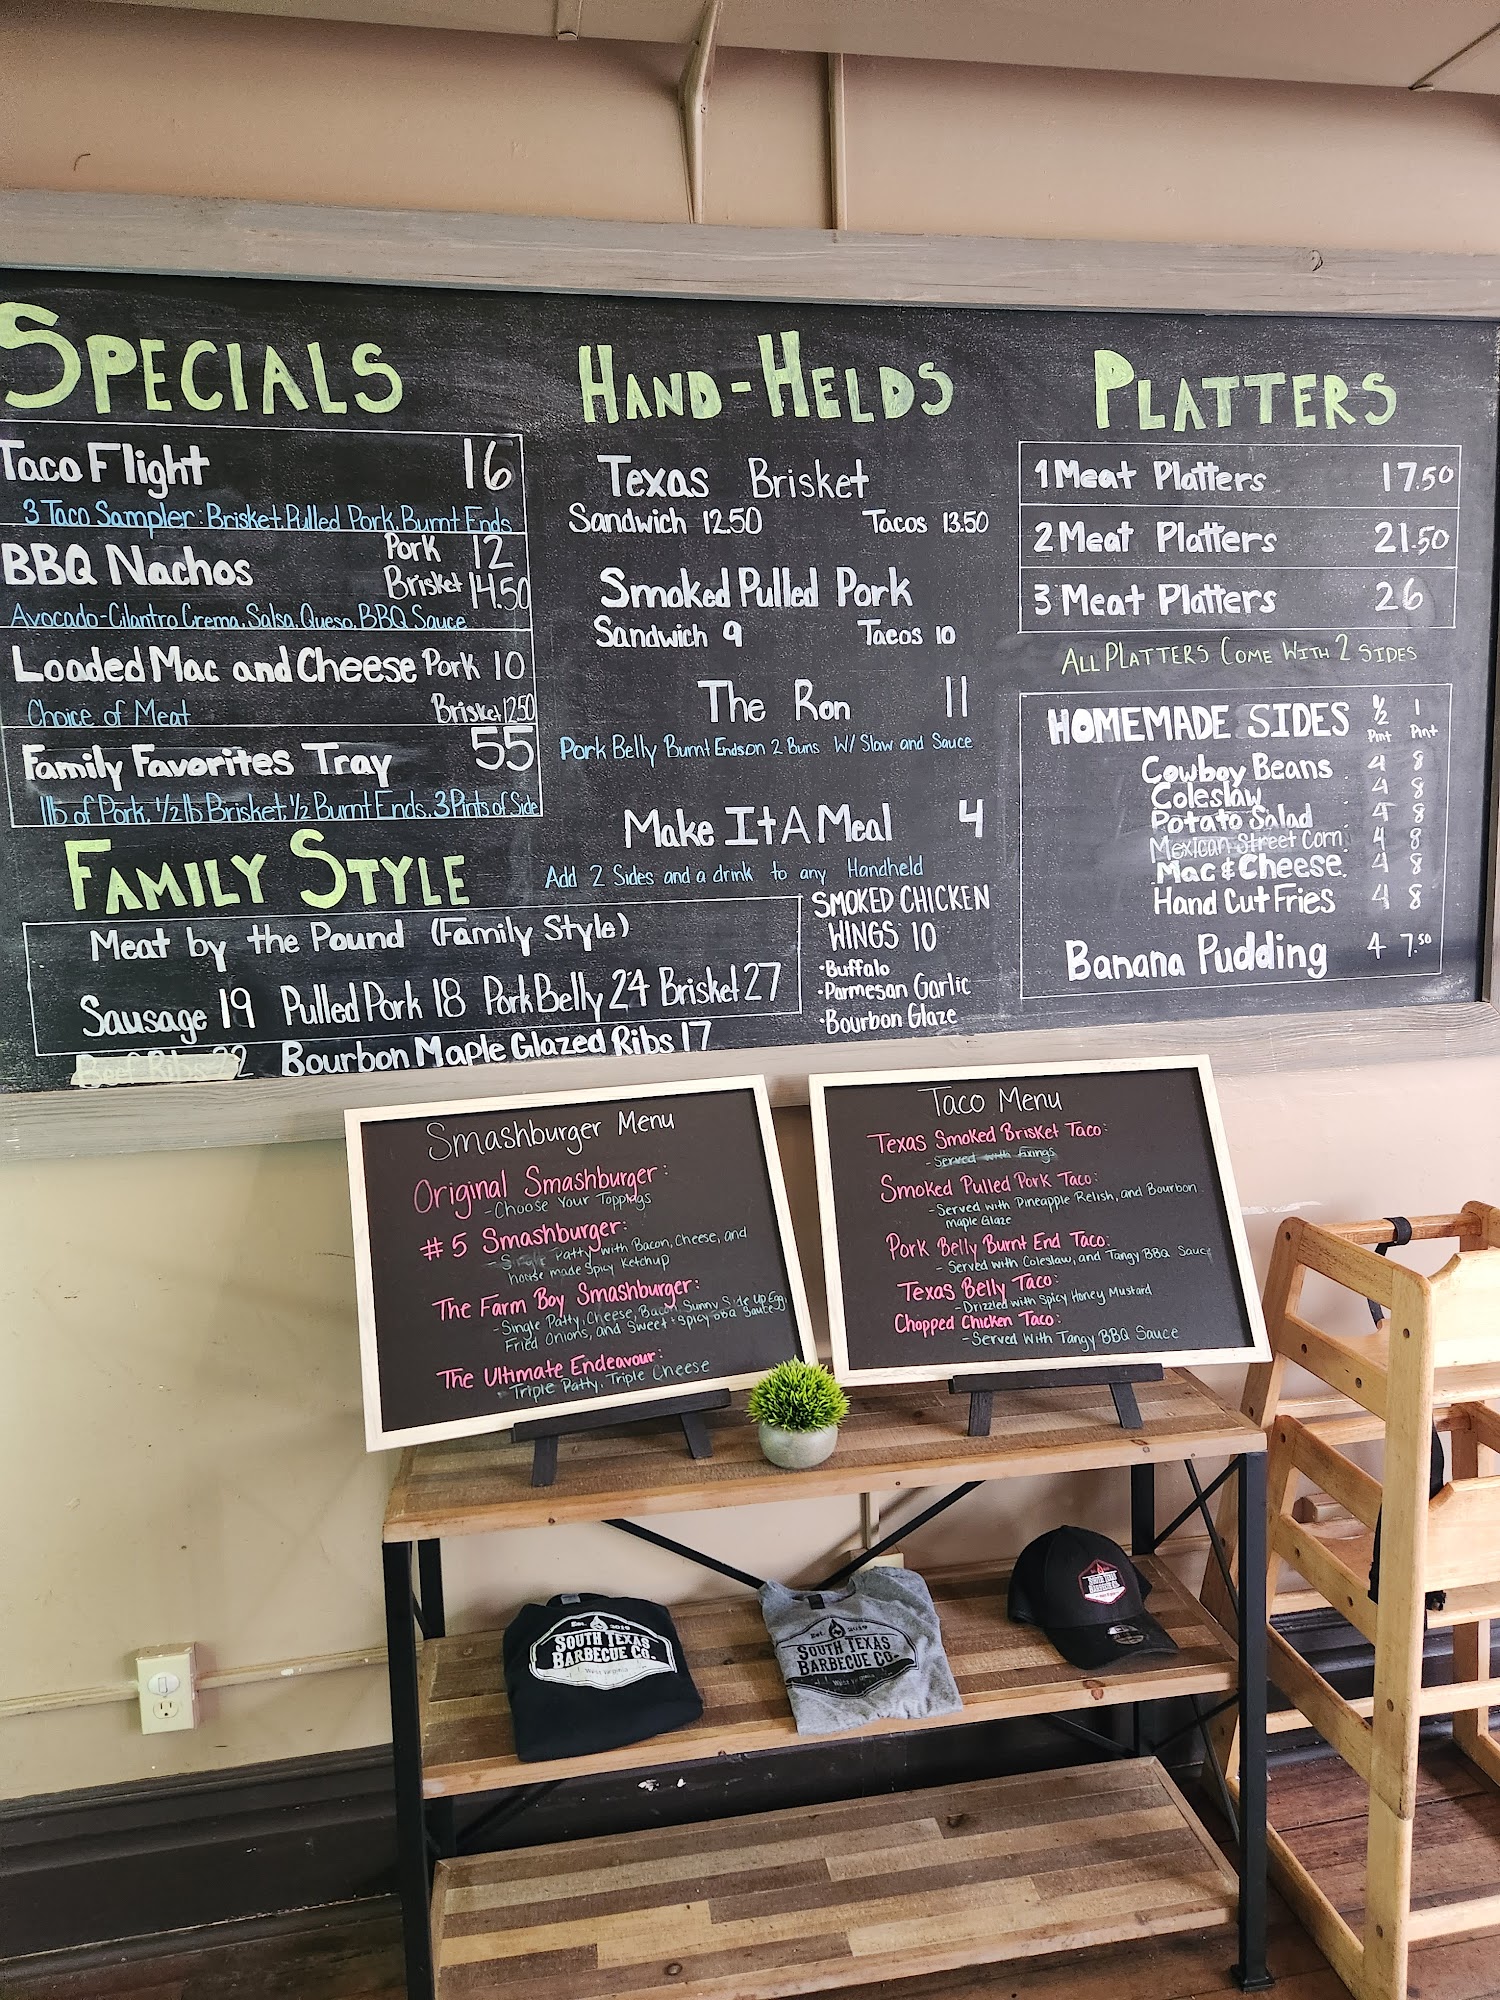 SPECIALS
Taco Flight 16
3 Taco Sampler: Brisket, Pulled Pork, Burnt Ends
BBQ Nachos Pork 12
Brisket 14.50
Avocado-Cilantro Crema, Salsa, Queso, BBQ Sauce
Loaded Mac and Cheese Pork 10
Choice of Meat Brisket 12.50
Family Favorites Tray 55
1lb of Pork, 1/2 lb Brisket, 1/2 Burnt Ends, 3 Pints of Side
FAMILY STYLE
Meat by the Pound (Family Style)
Sausage 19 Pulled Pork 18 Pork Belly 24 Brisket 27
Beef Ribs 22 Bourbon Maple Glazed Ribs 17
HAND-HELDS
Texas Brisket
Sandwich 12.50 Tacos 13.50
Smoked Pulled Pork
Sandwich 9 Tacos 10
The Ron 11
Pork Belly Burnt Ends on 2 Buns W/ Slaw and Sauce
Make It A Meal 4
Add 2 Sides and a drink to any Handheld
SMOKED CHICKEN
WINGS 10
•Buffalo
•Parmesan Garlic
•Bourbon Glaze
PLATTERS
1 Meat Platters 17.50
2 Meat Platters 21.50
3 Meat Platters 26
ALL PLATTERS COME WITH 2 SIDES
HOMEMADE SIDES 1/2 Pint 1 Pint
Cowboy Beans 4 8
Coleslaw 4 8
Potato Salad 4 8
Mexican Street Corn 4 8
Mac & Cheese 4 8
Hand Cut Fries 4 8
Banana Pudding 4 7.50
Smashburger Menu
Original Smashburger:
- Choose Your Toppings
#5 Smashburger:
- Single Patty with Bacon, Cheese, and
house made Spicy Ketchup
The Farm Boy Smashburger:
- Single Patty, Cheese, Bacon, Sunny Side Up Egg,
Fried Onions, and Sweet + Spicy BBQ Sauce
The Ultimate Endeavour:
- Triple Patty, Triple Cheese
Taco Menu
Texas Smoked Brisket Taco:
- Served with fixings
Smoked Pulled Pork Taco:
- Served with Pineapple Relish, and Bourbon
maple Glaze
Pork Belly Burnt End Taco:
- Served with Coleslaw, and Tangy BBQ Sauce
Texas Belly Taco:
- Drizzled with Spicy Honey Mustard
Chopped Chicken Taco:
- Served With Tangy BBQ Sauce
Est. 2019
SOUTH TEXAS
BARBECUE CO.
West Virginia
Est. 2019
SOUTH TEXAS
BARBECUE CO.
West Virginia
SOUTH TEXAS
BARBECUE CO.